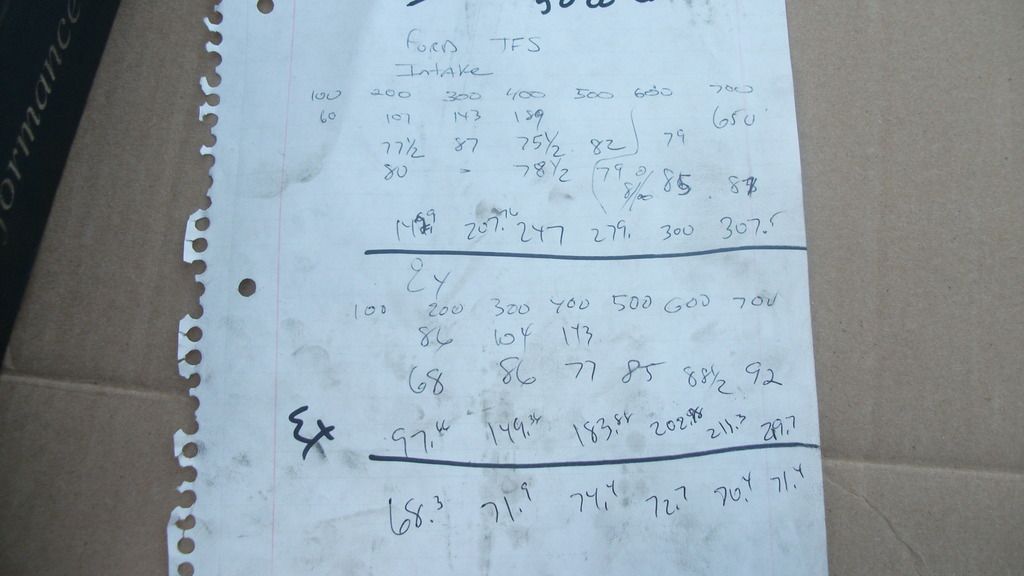 formance
Ford TFS
Intake
100 200 300 400 500 600 700
60 107 143 189 650
77 1/2 87 75 1/2 82 79
80 - 78 1/2 79 85
207.76 247 279. 300 307.5
Ex
100 200 300 400 500 600 700
86 104 143
68 86 77 85 88 1/2 92
Ex 97.44 149.34 183.88 202.98 211.3
68.3 71.9 74.4 72.7 70.4 71.4